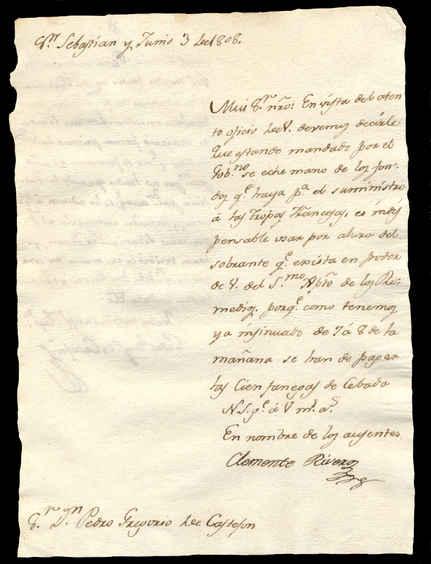 Sn. Sebastian y Junio 3 de 1808.
Mui Sr. nro: En vista del aten
to oficio de V. devemos decirle
que estando mandado por el
Gobno. se eche mano de los fon-
dos qe. haya pa. el suministro
á las Tropas Francesas, es indis
pensable usar por ahora del
sobrante qe. exista en poder
de V. del Smo. Xpto. de los Re-
medios, porqe. como tenemos
ya insinuado de 7 á 8 de la
mañana se han de pagar
las Cien fanegas de Cebada
N. S. ge. á V. ms. as.
En nombre de los ausentes
Clemente Rivero
Sr. Dn. Pedro Gregorio de